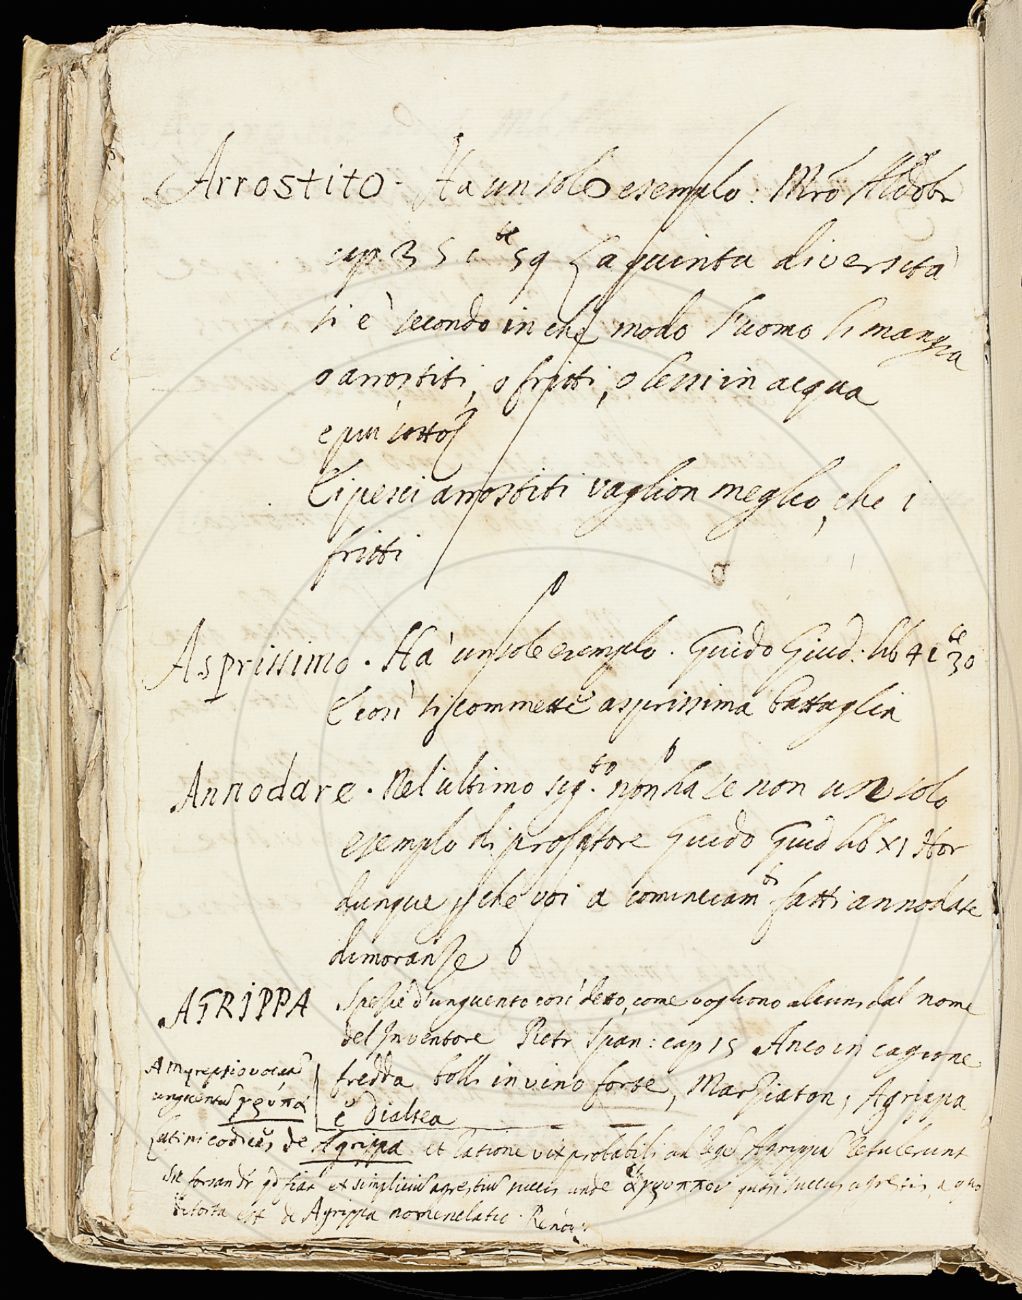 Arrostito. Ha un solo esempio. Mrõ Aldobr
cap. 35 c te 59 La quinta diversità
si è secondo in che modo l'uomo li mangia
o arrostiti, o fritti, o lessi in acqua
e più sotto
E i pesci arrostiti vaglion meglio, che i
fritti
Asprissimo. Hà un solo esempio. Guido Giud. lib 4 c te 30
E così si scommette asprissima battaglia
Annodare. Nel ultimo sig.to non ha se non un solo
esempio di prosatore Guido Giud lib XI Hor
dunque che voi a cominciam.to fatti annodate
dimoranze
AGRIPPA Spesie d'unguento così detto, come vogliono alcuni dal nome
del Inventore Pietr Span: cap 15 Anco in cagione
fredda bolli in vino forte, Marziaton, Agrippa
è Dialtea
A Myrepsio vocat
unguentũ
Latini codices de Agrippa et ratione vix probabili ad Regẽ Agrippã retulerunt
sit quasi succus agrestis, a quo
de Agrippa nomenclatio.